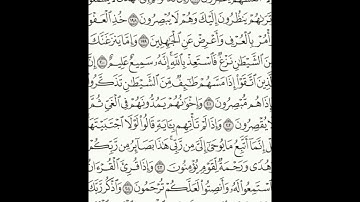 وَتَرَىٰهُمْ يَنظُرُونَ إِلَيْكَ وَهُمْ لَا يُبْصِرُونَ ١٩٨ خُذِ الْعَفْوَ
وَأْمُرْ بِالْعُرْفِ وَأَعْرِضْ عَنِ الْجَٰهِلِينَ ١٩٩ وَإِمَّا يَنزَغَنَّكَ
مِنَ الشَّيْطَٰنِ نَزْغٌ فَاسْتَعِذْ بِاللَّهِ إِنَّهُ سَمِيعٌ عَلِيمٌ ٢٠٠ إِنَّ
الَّذِينَ اتَّقَوْا إِذَا مَسَّهُمْ طَٰٓئِفٌ مِّنَ الشَّيْطَٰنِ تَذَكَّرُوا
فَإِذَا هُم مُّبْصِرُونَ ٢٠١ وَإِخْوَٰنُهُمْ يَمُدُّونَهُمْ فِي الْغَيِّ ثُمَّ
لَا يُقْصِرُونَ ٢٠٢ وَإِذَا لَمْ تَأْتِهِم بِـَٔايَةٍ قَالُوا لَوْلَا اجْتَبَيْتَهَا
قُلْ إِنَّمَا أَتَّبِعُ مَا يُوحَىٰ إِلَيَّ مِن رَّبِّي هَٰذَا بَصَآئِرُ مِن رَّبِّكُمْ
وَهُدًى وَرَحْمَةٌ لِّقَوْمٍ يُؤْمِنُونَ ٢٠٣ وَإِذَا قُرِئَ الْقُرْءَانُ
فَاسْتَمِعُوا لَهُ وَأَنصِتُوا لَعَلَّكُمْ تُرْحَمُونَ ٢٠٤ وَاذْكُر رَّبَّكَ